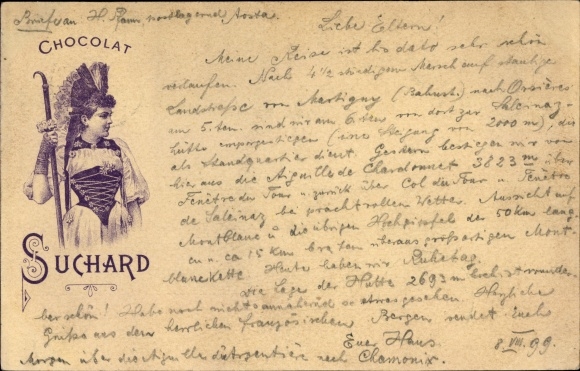 Briefe an H. Pfann, postlagernd Aosta.
CHOCOLAT
SUCHARD
Liebe Eltern!
Meine Reise ist bis dato sehr schön
verlaufen. Nach 4½ stündigem Marsch auf staubiger
Landstraße von Martigny (Bahnst.) nach Orsières
am 5. ten. sind wir am 6 ten von dort zur Saleinaz-
hütte emporgestiegen (eine Steigung von 2000 m), die
als Standquartier dient. Gestern bestiegen wir von
hier aus die Aiguille de Chardonnet 3823 m über
Fenêtre du Tour u. zurück über Col du Tour u. Fenêtre
de Saleinaz bei prachtvollem Wetter. Aussicht auf
Montblanc u. die übrigen Hochgipfel der 50 km lang
en u. ca 15 km breiten überaus großartigen Mont-
blanckette. Heute haben wir Ruhetag.
Die Lage der Hütte 2693 m hoch ist wunder-
bar schön! Habe noch nichts annähernd so etwas gesehen. Herzliche
Grüße aus den herrlichen französischen Bergen sendet Euch
Euer Hans. 8. VIII. 99.
Morgen über die Aiguille d'Argentière nach Chamonix.